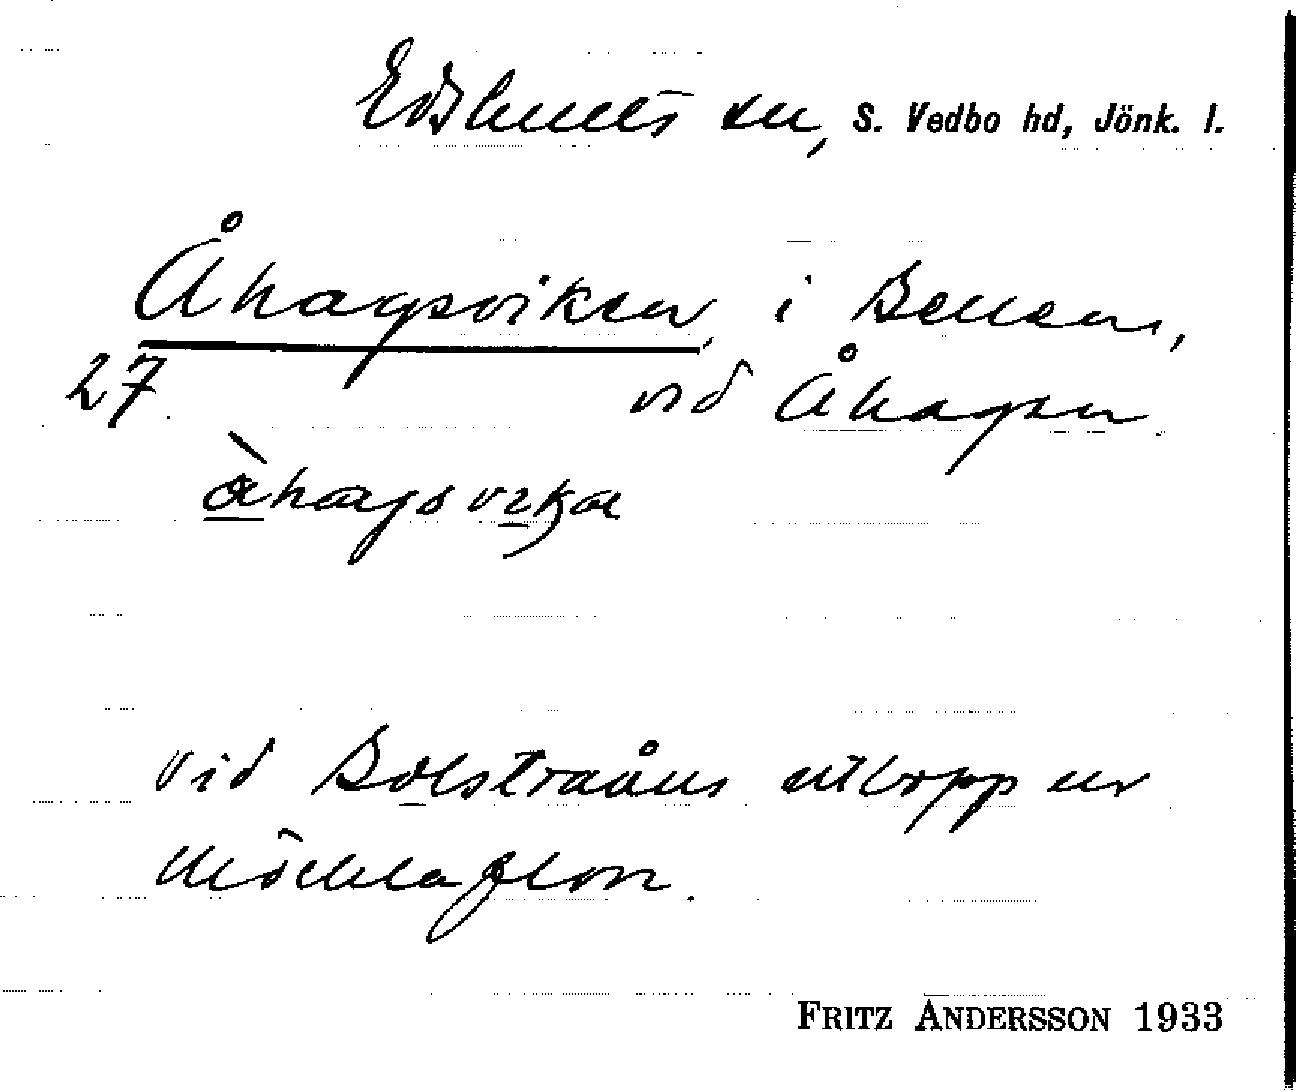 Edshults sn, S. Vedbo hd, Jönk. l.
Åhagsviken i Bellen,
27 vid Åhagen
vid Bolstraåns utlopp ur
Möcklaflon.
FRITZ ANDERSSON 1933